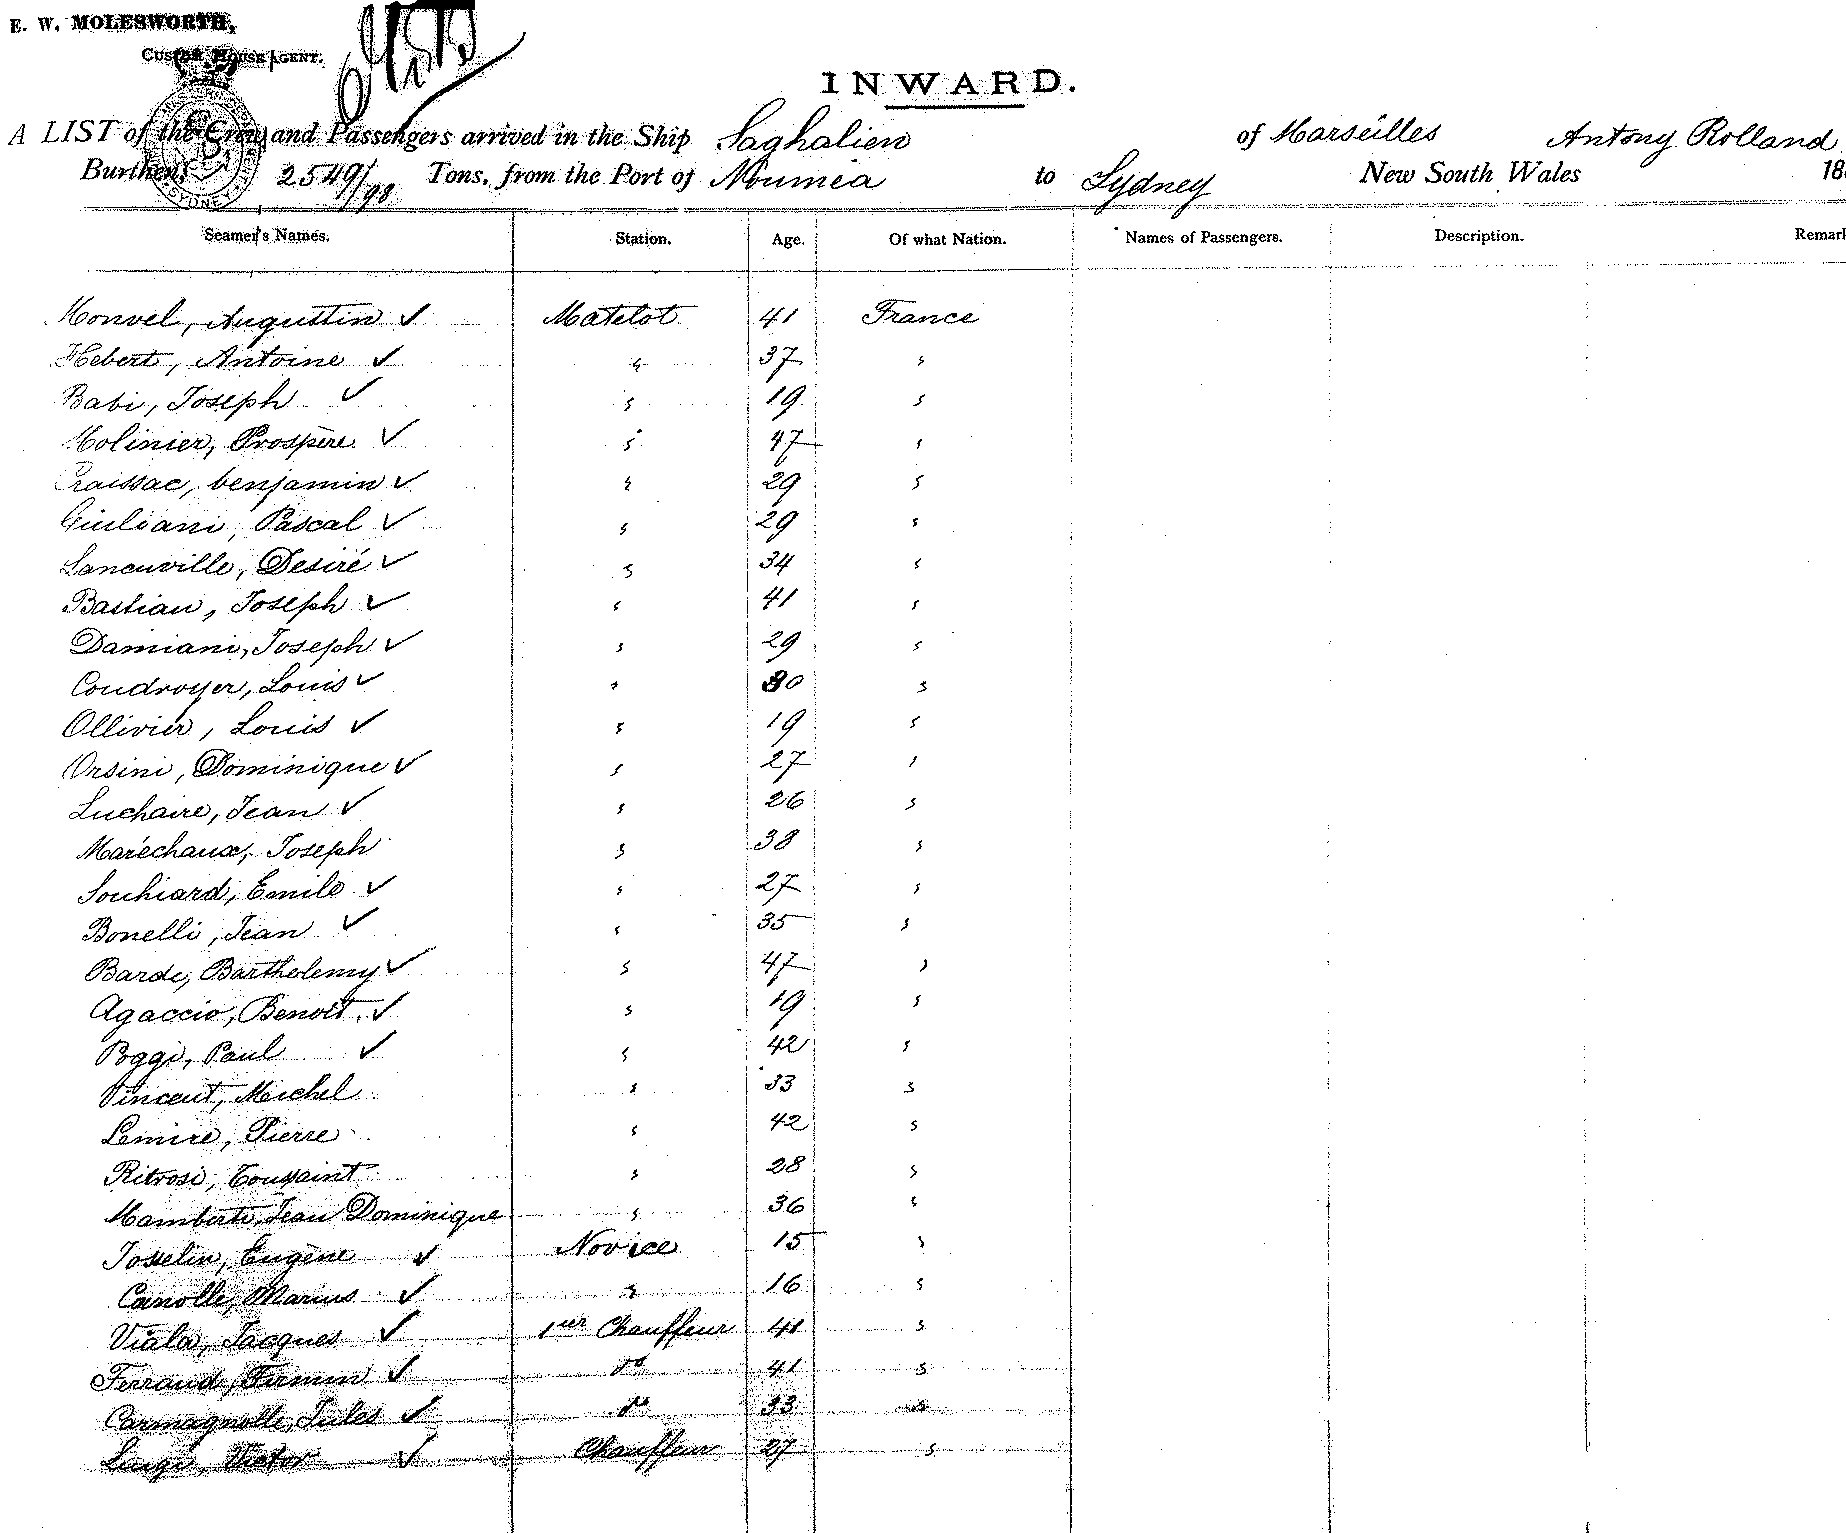 E. W. MOLESWORTH,
CUSTOM HOUSE AGENT.
INWARD.
A LIST of the Crew and Passengers arrived in the Ship Saghalien of Marseilles Antony Rolland
Burthen, 2549/98 Tons, from the Port of Noumea to Sydney New South Wales 18
Seamen's Names. Station. Age. Of what Nation. Names of Passengers. Description. Remark
Monvel, Augustin ✓ Matelot 41 France
Hebert, Antoine ✓ " 37 "
Babi, Joseph ✓ " 19 "
Molinier, Prospère ✓ " 47 "
Craissac, benjamin ✓ " 29 "
Giuliani, Pascal ✓ " 29 "
Laneuville, Desiré ✓ " 34 "
Bastian, Joseph ✓ " 41 "
Damiani, Joseph ✓ " 29 "
Coudroyer, Louis ✓ " 30 "
Ollivier, Louis ✓ " 19 "
Orsini, Dominique ✓ " 27 "
Luchaire, Jean ✓ " 26 "
Maréchaux, Joseph " 38 "
Souhiard, Emile ✓ " 27 "
Bonelli, Jean ✓ " 35 "
Barde, Barthelemy ✓ " 47 "
Agaccio, Benoit ✓ " 19 "
Poggi, Paul ✓ " 42 "
Vincent, Michel " 33 "
Lemire, Pierre " 42 "
Ritrosi, Toussaint " 28 "
Mamberti, Jean Dominique " 36 "
Josselin, Eugène ✓ Novice 15 "
Canolle, Marius ✓ " 16 "
Viala, Jacques ✓ 1ier Chauffeur 41 "
Ferraud, Firmin ✓ do 41 "
Carmagnolle, Jules ✓ do 33 "
Luigi, Victor ✓ Chauffeur 27 "